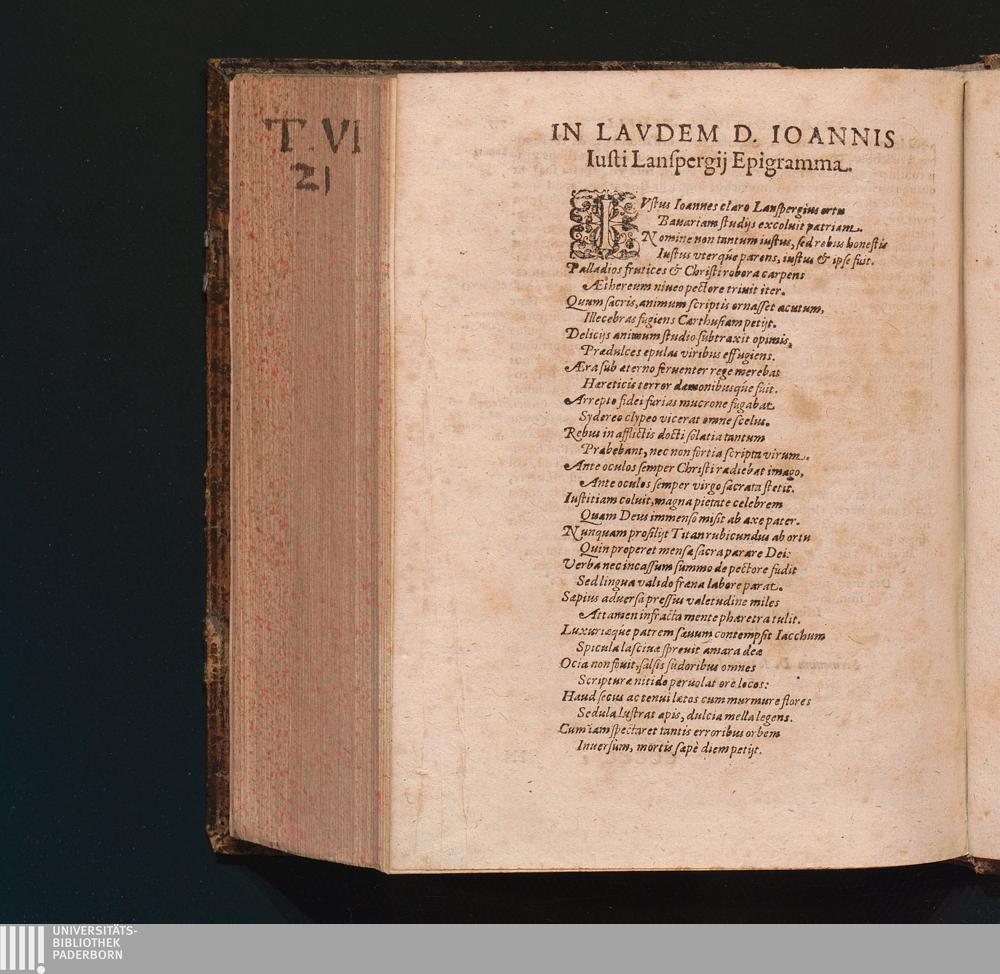 T. VI
21
IN LAVDEM D. IOANNIS
Iuſti Lanſpergij Epigramma.
IVſtus Ioannes claro Lanſpergius ortu
Bauariam ſtudijs excoluit patriam.
Nomine non tantum iuſtus, ſed rebus honeſtis
Iuſtus vterq́ue parens, iuſtus & ipſe fuit.
Palladios frutices & Chriſti robora carpens
Æthereum niueo pectore triuit iter.
Quum ſacris, animum ſcriptis ornaſſet acutum,
Illecebras fugiens Carthuſiam petijt.
Delicijs animum ſtudio ſubtraxit opimis,
Prædulces epulas viribus effugiens.
Æra ſub æterno feruenter rege merebat
Hæreticis terror dæmonibusq́ue fuit.
Arrepto fidei furias mucrone fugabat
Sydereo clypeo vicerat omne ſcelus.
Rebus in afflictis docti ſolatia tantum
Præbebant, nec non fortia ſcripta virum.
Ante oculos ſemper Chriſti radiebat imago,
Ante oculos ſemper virgo ſacrata ſtetit.
Iuſtitiam coluit, magna pietate celebrem
Quam Deus immenſo miſit ab axe pater.
Nunquam proſilijt Titan rubicundus ab ortu
Quin properet menſæ ſacra parare Dei:
Verba nec incaſſum ſummo de pectore fudit
Sed lingua valido fræna labore parat.
Sæpius aduerſa preſſus valetudine miles
Attamen infracta mente pharetra tulit.
Luxuriæq́ue patrem ſæuum contempſit Iacchum
Spicula laſciuæ ſpreuit amara deæ
Ocia non fouit, ſalſis ſudoribus omnes
Scripturæ nitido peruolat ore locos:
Haud ſecus ac tenui lætos cum murmure flores
Sedula luſtrat apis, dulcia mella legens.
Cum iam ſpectaret tantis erroribus orbem
Inuerſum, mortis ſæpè diem petijt.
UNIVERSITÄTS-
BIBLIOTHEK
PADERBORN